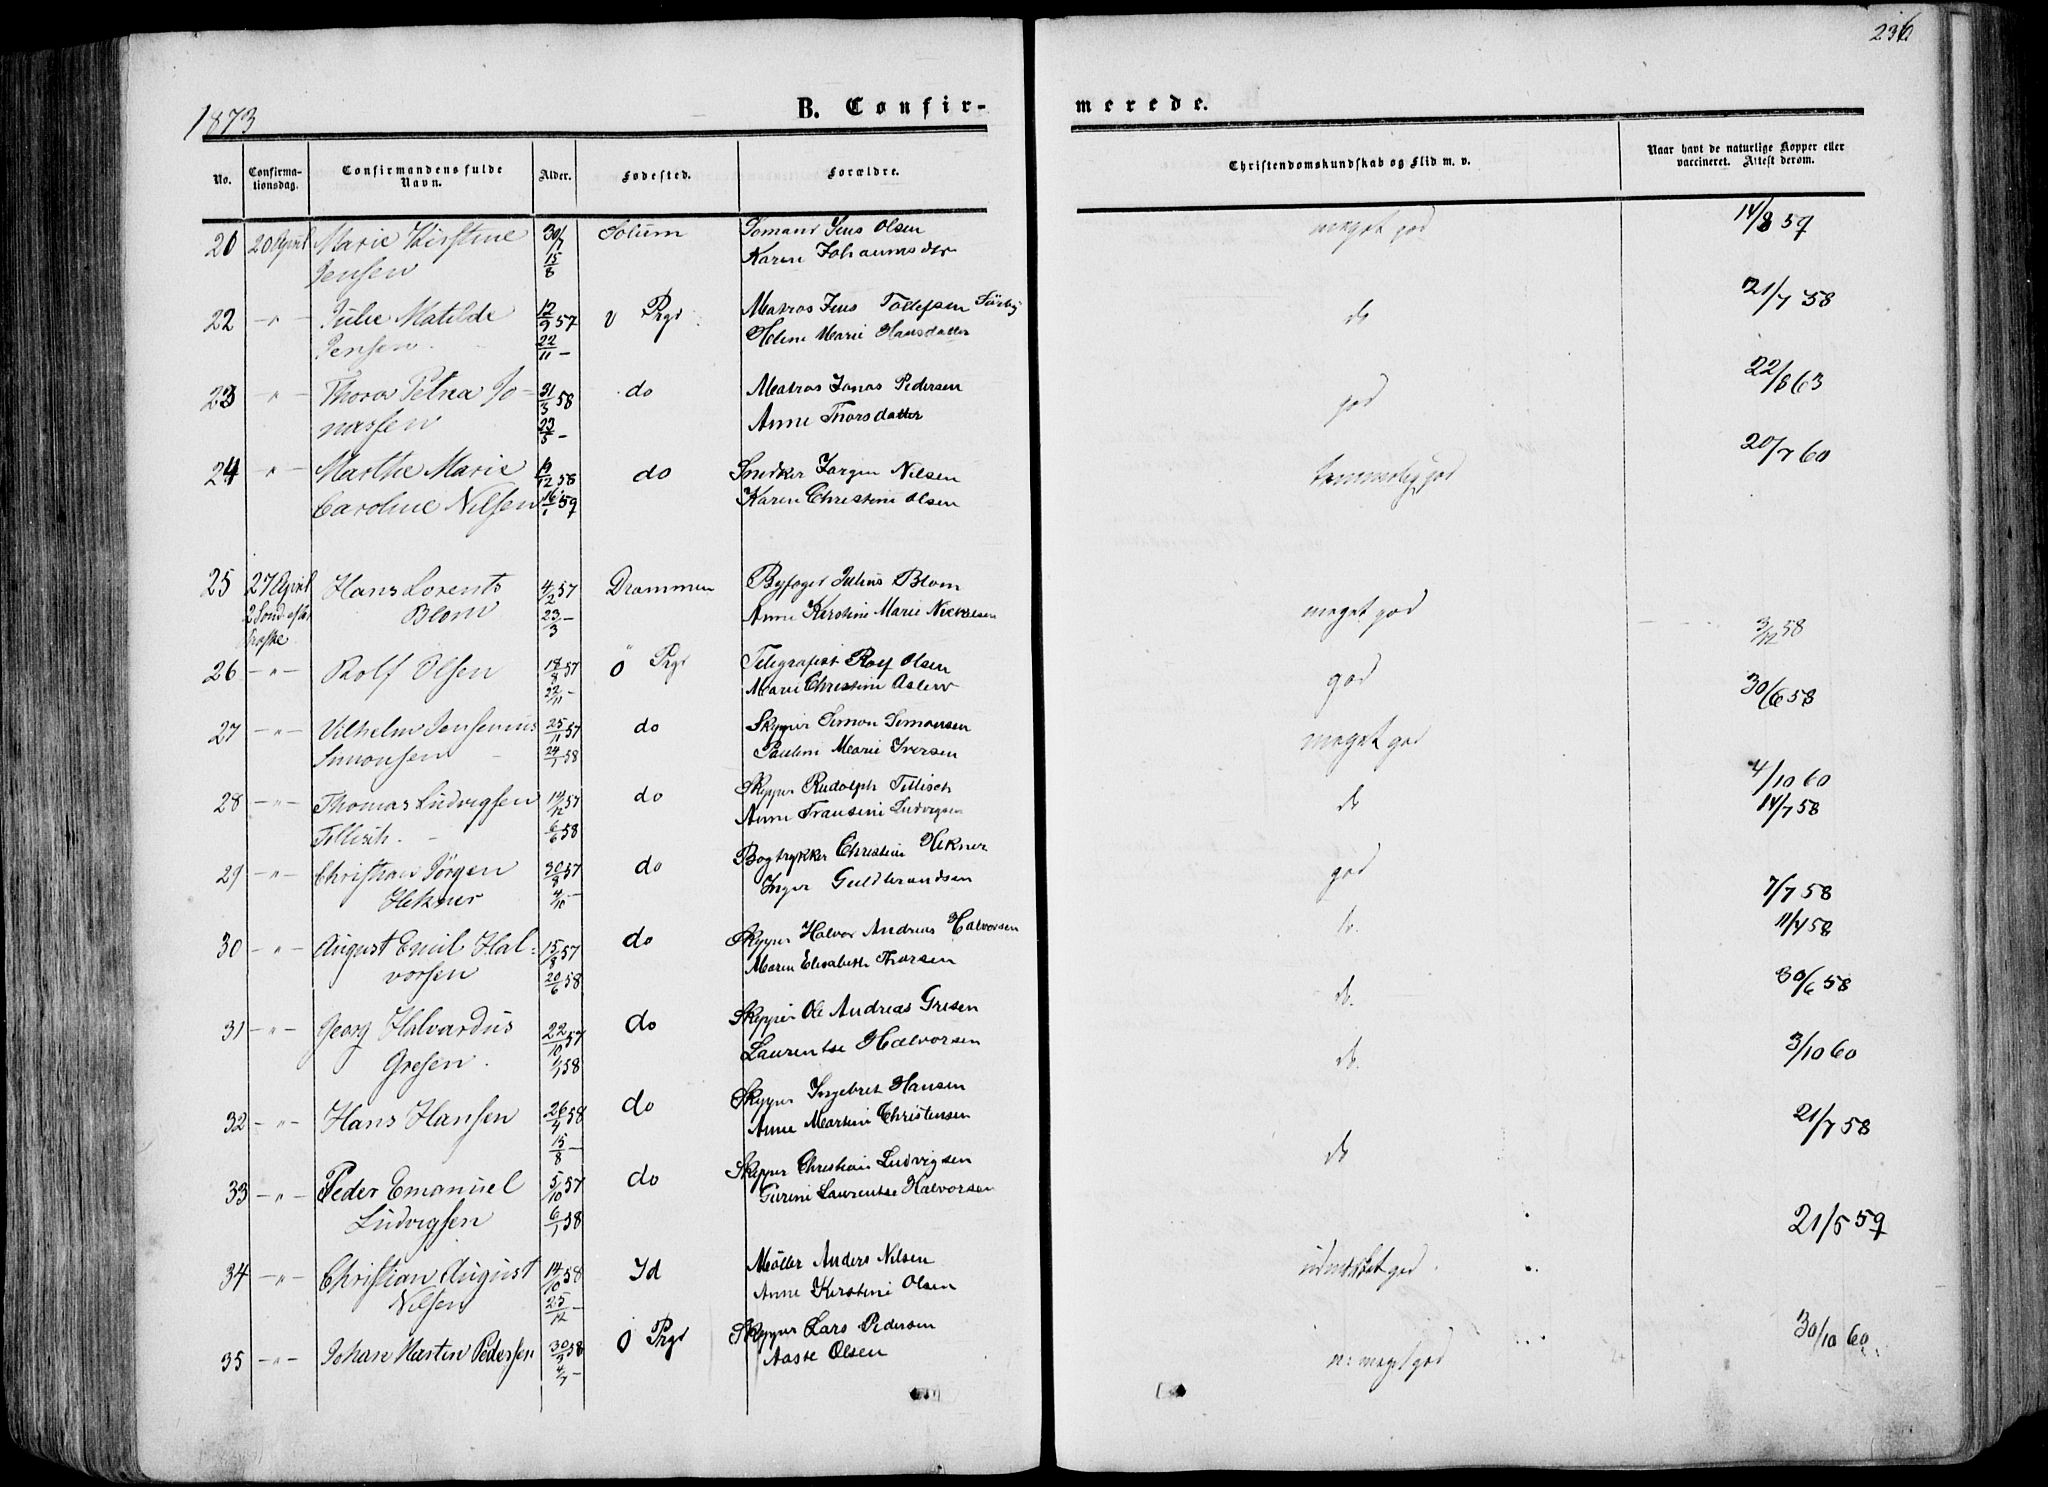 236
1873
B. Confir-
merede.
No.
Confirma-
tionsdag.
Confirmandens fulde
Navn.
Alder.
Fødested.
Forældre.
Christendomskundskab og Flid m. v.
Naar havt de naturlige Kopper eller
vaccineret. Attest derom.
20 20 April Marie Kirstine 30/7 Solum Somand Jens Olsen meget god 14/8 59
Jensen 15/8 Karen
22 -"- Julie Matilde 12/9 57 v Prgr Matros Jens Tollefsen do 21/7 58
Jensen. 22/11 - Helene Marie Hansdatter
23 " Thora Petrea Jo- 31/3 58 do Matros Jonas Pedersen god 22/8 63
nassen 23/5 - Anne Thorsdatter
24 " Marthe Marie 58 do Snedker Jørgen Nilsen temmelig god 20/7 60
Caroline Nilsen 16/1 59 Karen Christine Olsen
25 27 April Hans Lorents 4/2 57 Drammen Byfoged Julius Blom meget god 3/12 58
2 Sond. efter Blom 23/3 - Anne Kirstine Marie
Paaske.
26 -"- Rolf Olsen 18/8 57 Ø Prgr Telegrafist Rolf Olsen god 30/6 58
22/11 - Marie Christine
27 -"- Vilhelm Jensenius 25/11 57 do Skipper Simon Simonsen meget god 4/10 60
Simonsen 24/1 58 Pauline Marie Iversen
28 -"- Thomas Ludvigsen 14/12 57 do Skipper Rudolph Tellisch do 14/7 58
Tellisch. 6/6 58 Anne Fransine Ludvigsen
29 -"- Christian Jørgen 30/8 57 do Bogtrykker Christian Hekner god 7/7 58
Hekner 4/10 - Inger Guldbrandsen
30 -"- August Emil Hal- 15/8 57 do Skipper Halvor Andreas Halvorsen do. 11/7 58
vorsen 20/6 58 Maren Elisabeth Thorsen
31 -"- Georg Halvardus 22/10 57 do Skipper Ole Andreas Gresen do. 30/6 58
Gresen. 1/1 58 Laurentse Halvorsen
32 -"- Hans Hansen 26/4 58 do Skipper Ingebret Hansen do. 3/10 60
15/8 - Anne Martine Christensen
33 -"- Peder Emanuel 5/10 57 do Skipper Christian Ludvigsen do 21/7 58
Ludvigsen 6/1 58 Gurine Laurentse Halvorsen
34 -"- Christian August 14/10 58 Id Møller Anders Nilsen udmærket god. 21/5 59
Nilsen 25/12 - Anne Kirstine Olsen
35 -"- Johan Martin Pedersen 30/3 58 Ø Prgr Skipper Lars Pedersen n: meget god 30/10 60
4/7 - Aaste Olsen